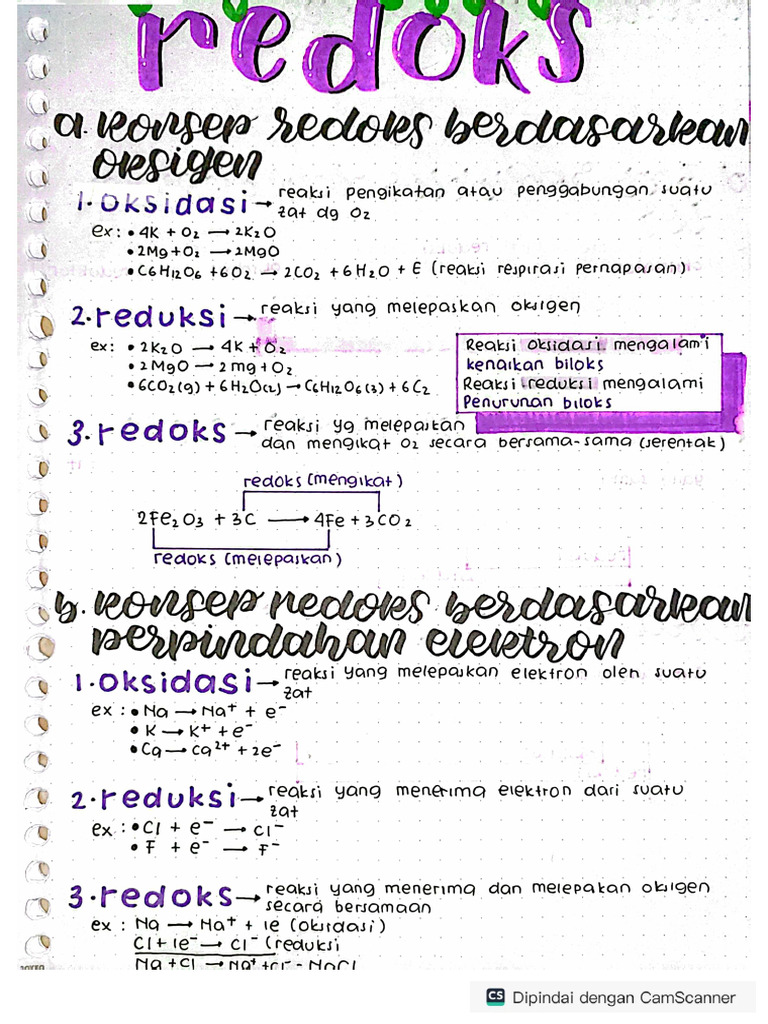 redoks
a. konsep redoks berdasarkan
oksigen
1. oksidasi → reaksi pengikatan atau penggabungan suatu
zat dg O₂
ex: • 4K + O₂ → 2K₂O
• 2Mg + O₂ → 2MgO
• C6H12O6 + 6O₂ → 2CO₂ + 6H₂O + E (reaksi respirasi pernapasan)
2. reduksi → reaksi yang melepaskan oksigen
ex: • 2K₂O → 4K + O₂
• 2MgO → 2mg + O₂
• 6CO₂(g) + 6H₂O(2) → C6H12O6(3) + 6C₂
Reaksi oksidasi mengalami
kenaikan biloks
Reaksi reduksi mengalami
Penurunan biloks
3. redoks → reaksi yg melepaskan
dan mengikat O₂ secara bersama-sama (serentak)
redoks (mengikat)
2Fe₂O₃ + 3C → 4Fe + 3CO₂
redoks (melepaskan)
b. konsep redoks berdasarkan
perpindahan elektron
1. oksidasi → reaksi yang melepaskan elektron oleh suatu
zat
ex: • Na → Na⁺ + e⁻
• K → K⁺ + e⁻
• Ca → Ca²⁺ + 2e⁻
2. reduksi → reaksi yang menerima elektron dari suatu
zat
ex: • Cl + e⁻ → Cl⁻
• F + e⁻ → F⁻
3. redoks → reaksi yang menerima dan melepakan oksigen
secara bersamaan
ex: Na → Na⁺ + 1e (oksidasi)
Cl + 1e⁻ → Cl⁻ (reduksi
Na + Cl → Na⁺ + Cl⁻ - NaCl
CS Dipindai dengan CamScanner